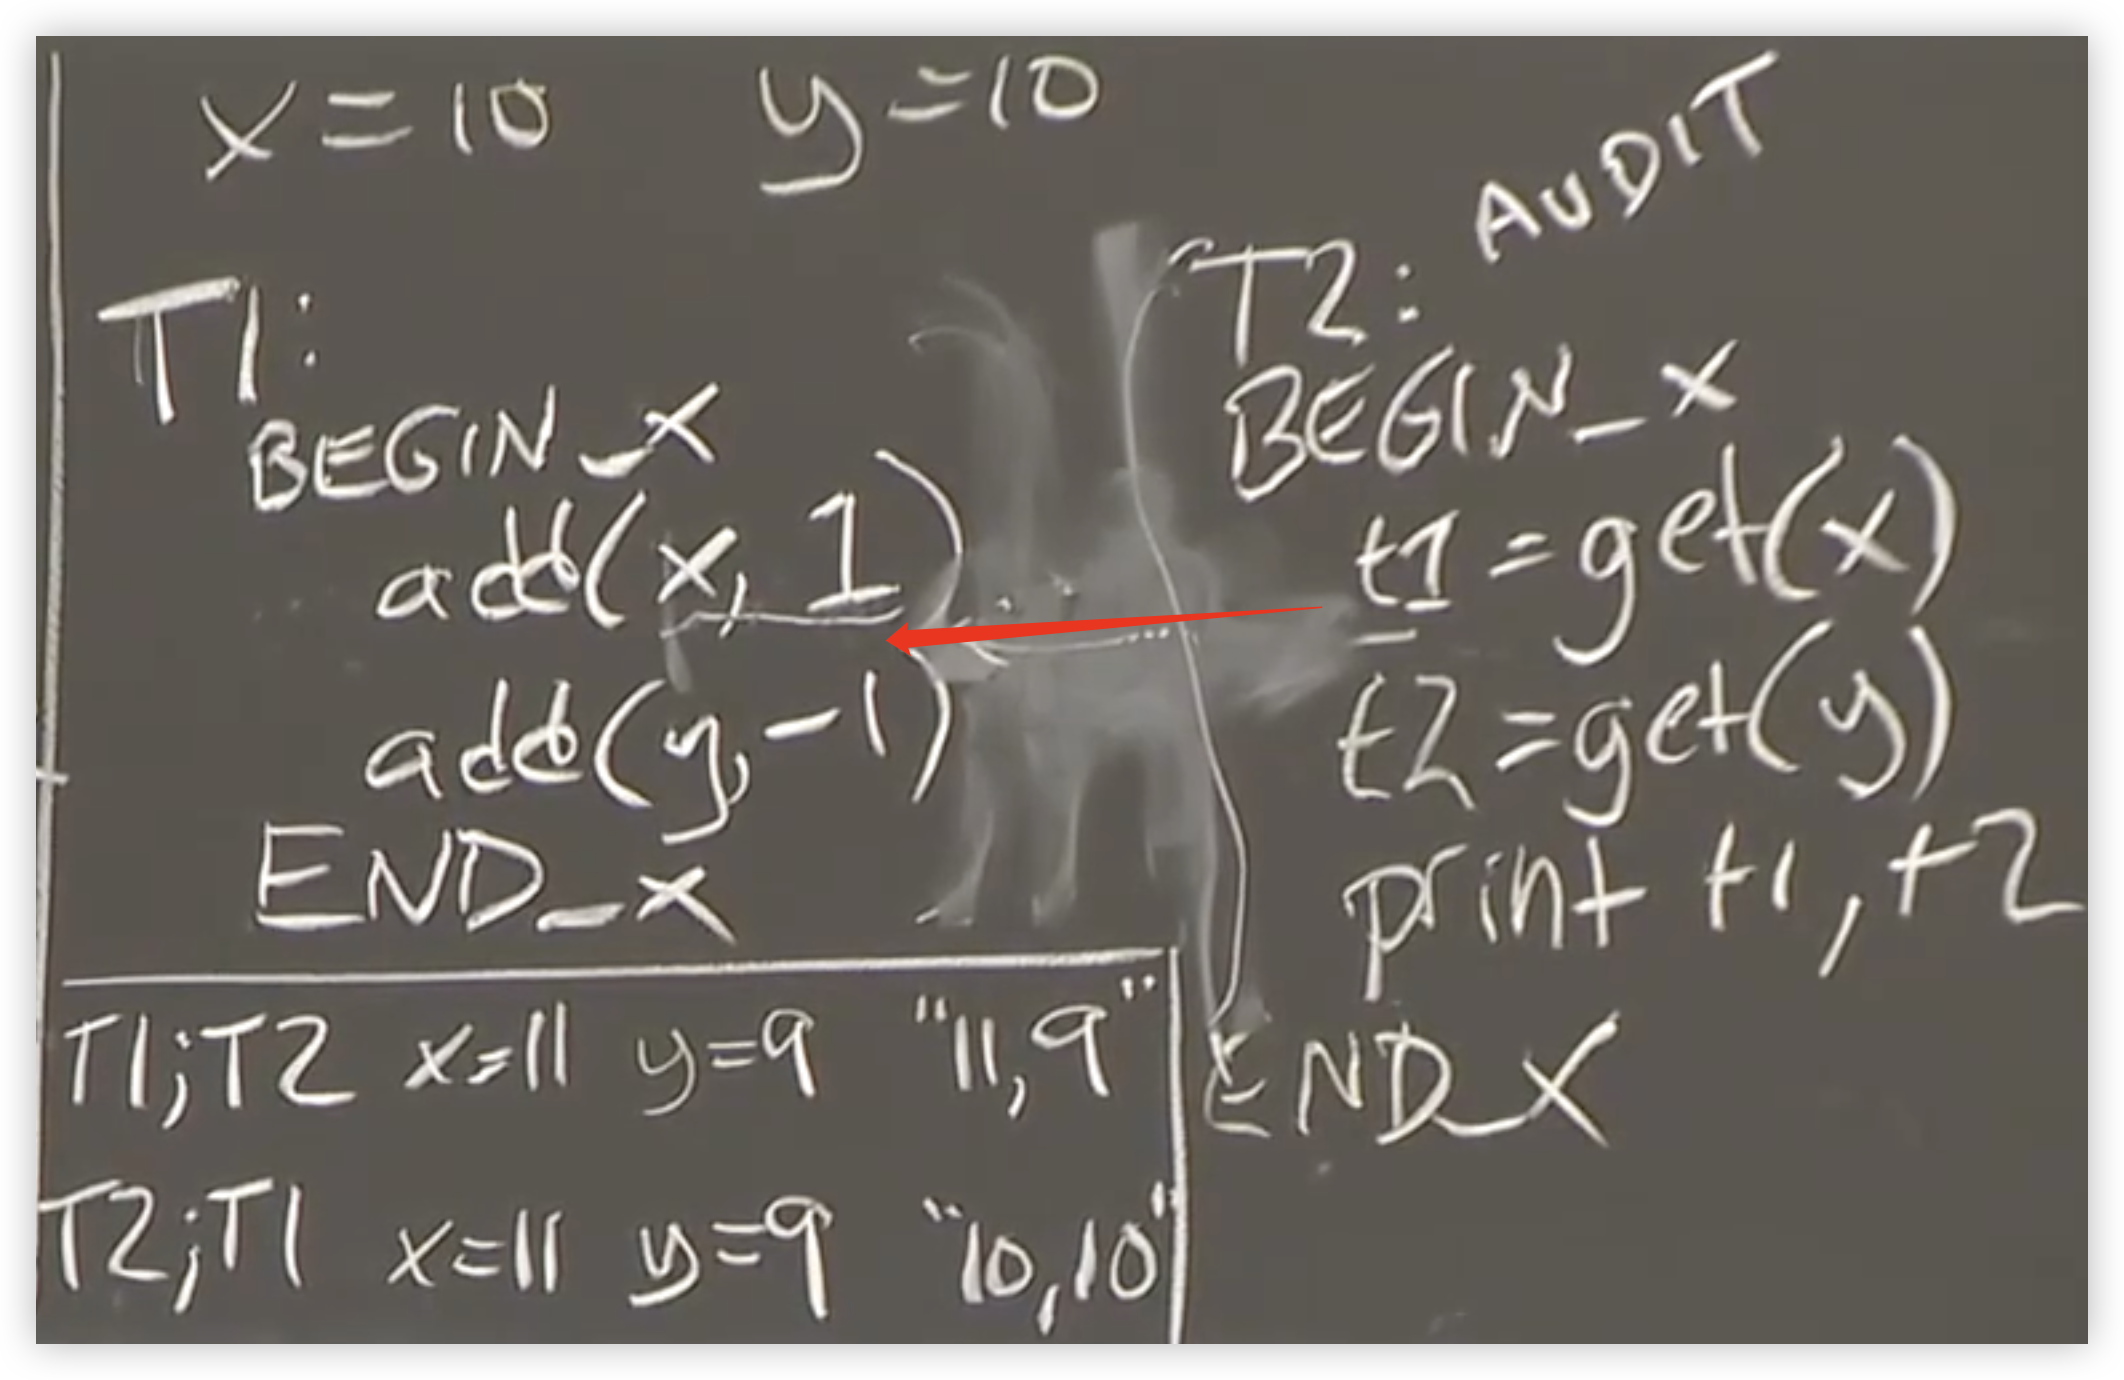 x=10 y=10
T1:
BEGIN_X
add(x, 1)
add(y, -1)
END_X
T2: AUDIT
BEGIN_X
t1=get(x)
t2=get(y)
print t1, t2
END_X
T1;T2 x=11 y=9 "11,9"
T2;T1 x=11 y=9 "10,10"